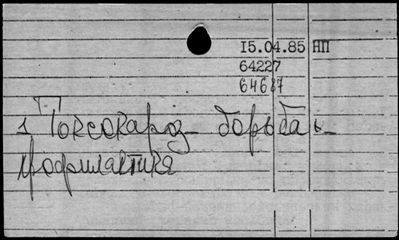 15.04.85 НП
64227
64687
1 Токсокароз - борьба и
профилактика